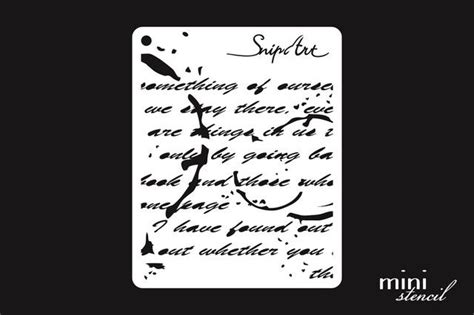 SnipArt
something of ourse
we stay there, eve
are things in us
only by going ba
look and those who
one page
I have found out
out whether you
the
mini
stencil